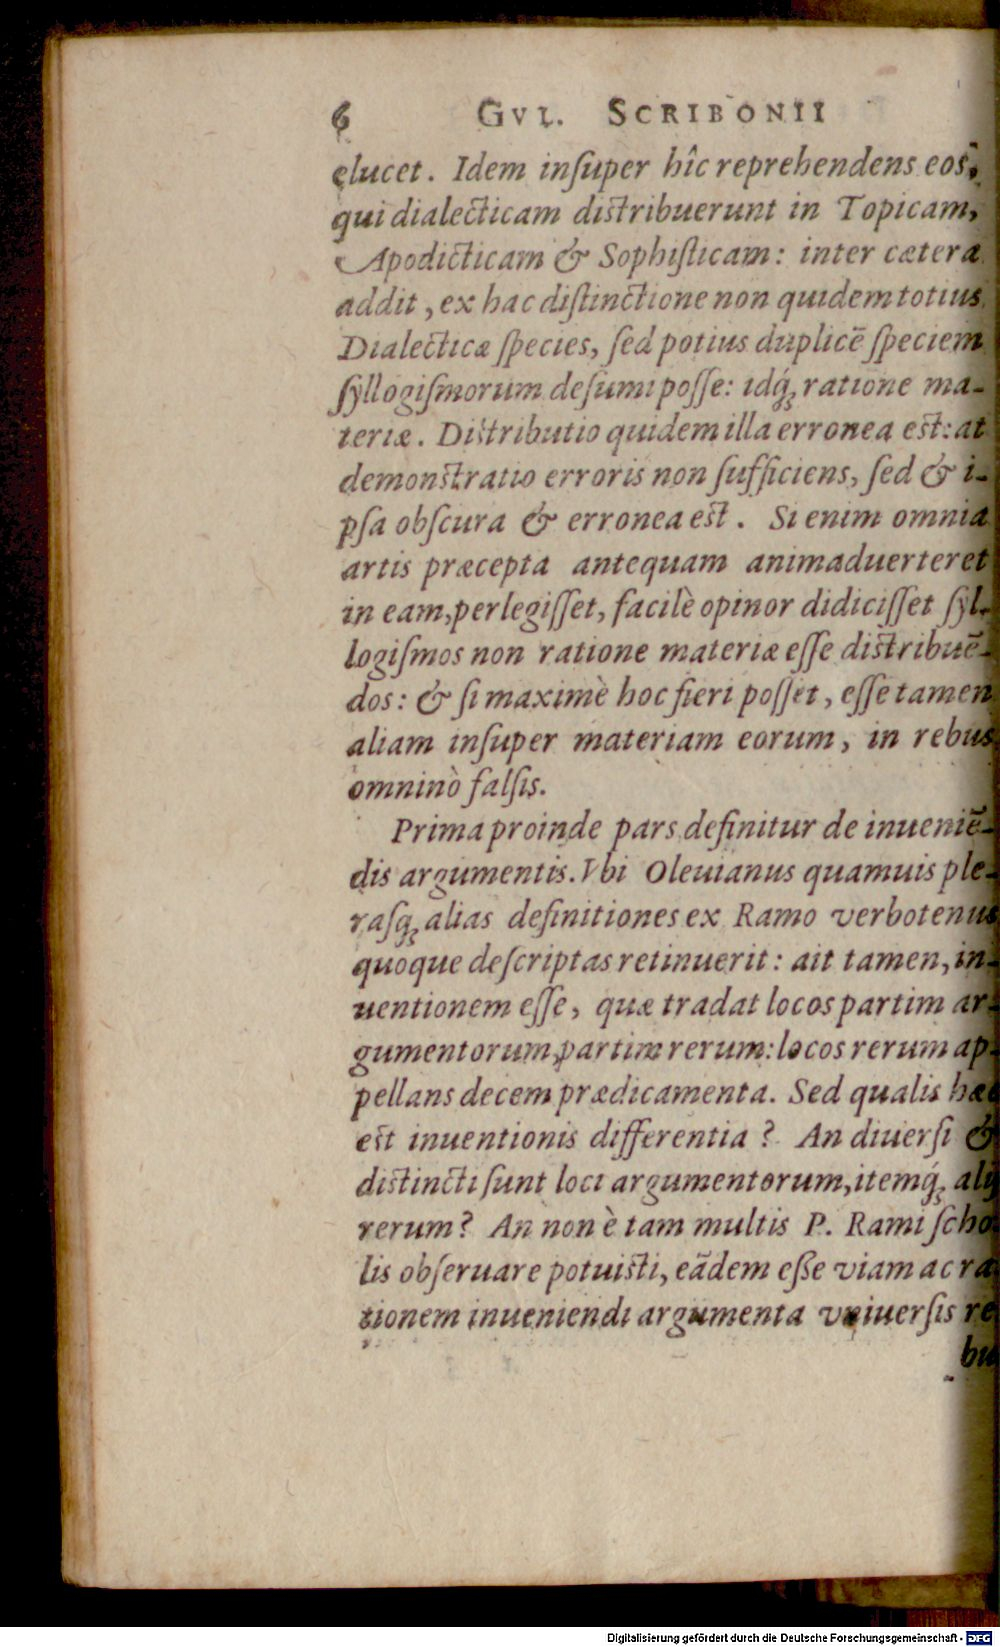 6 GVL. SCRIBONII
elucet. Idem inſuper hîc reprehendens eos,
qui dialecticam distribuerunt in Topicam,
Apodicticam & Sophiſticam: inter cætera
addit, ex hac diſtinctione non quidem totius
Dialecticæ ſpecies, ſed potius duplicē ſpeciem
ſyllogiſmorum deſumi poſſe: idq́; ratione ma-
teriæ. Distributio quidem illa erronea est: at
demonstratio erroris non ſufficiens, ſed & i-
pſa obſcura & erronea est. Si enim omnia
artis præcepta antequam animaduerteret
in eam, perlegiſſet, facilè opinor didiciſſet ſyl-
logiſmos non ratione materiæ eſſe distribuē-
dos: & ſi maximè hoc fieri poſſet, eſſe tamen
aliam inſuper materiam eorum, in rebus
omninò falſis.
Prima proinde pars definitur de inueniē-
dis argumentis. Vbi Oleuianus quamuis ple-
raſq́; alias definitiones ex Ramo verbotenus
quoque deſcriptas retinuerit: ait tamen, in-
uentionem eſſe, quæ tradat locos partim ar-
gumentorum, partim rerum: locos rerum ap-
pellans decem prædicamenta. Sed qualis hæc
est inuentionis differentia? An diuerſi &
distincti ſunt loci argumentorum, itemq́; alij
rerum? An non è tam multis P. Rami ſcho
lis obſeruare potuisti, eādem eſſe viam ac ra
tionem inueniendi argumenta vniuerſis re
bu
Digitalisierung gefördert durch die Deutsche Forschungsgemeinschaft - DFG